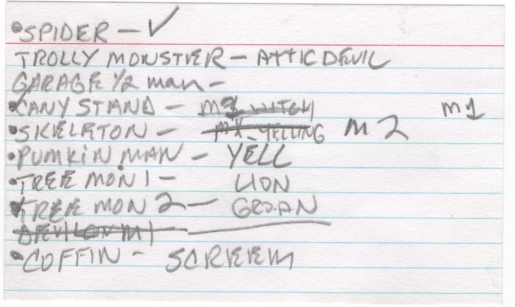 •SPIDER - ✓
TROLLY MONSTER - ATTIC DEVIL
GARAGE 1/2 man -
•CANY STAND - M1 WITCH m1
•SKELETON - YELLING M2
•PUMKIN MAN - YELL
•TREE MON 1 - LION
TREE MON 2 - GROAN
DEVIL ON M1
•COFFIN - SCREEM